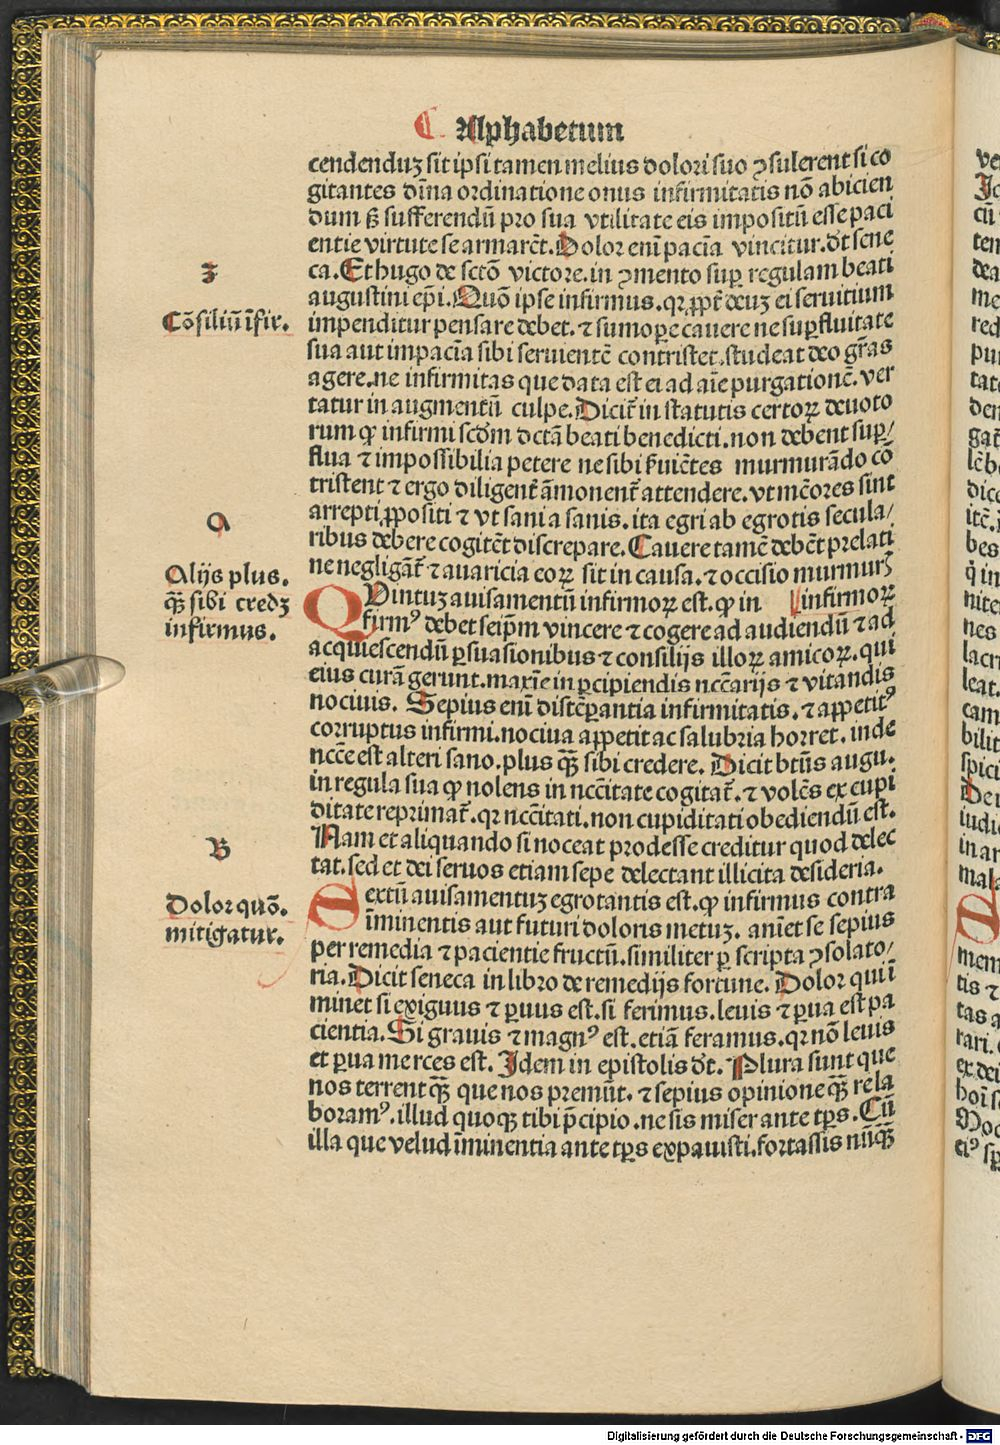 C Alphabetum
cendenduꝫ sit ipsi tamen melius dolori suo ꝯsulerent si co
gitantes diuīna ordinatione onus infirmitatis nō abicien
dum sꝫ sufferendū pro sua vtilitate eis impositū esse paci
entie virtute se armarēt. Dolor enī paciā vincitur. vt sene
ca. Et hugo de sctō victore. in ꝯmento suꝑ regulam beati
augustini epī. Quō ipse infirmus. qꝛ ꝓpt̄ deuꝫ ei seruitium
impenditur pensare debet. ⁊ sumoꝑe cauere ne suꝑfluitate
sua aut impaciā sibi seruientē contristet. studeat deo grās
agere. ne infirmitas que data est ei ad aīe purgationē. ver
tatur in augmentū culpe. Dicit̄ in statutis certoꝝ deuoto
rum ꝙ infirmi scdm̄ dctā beati benedicti. non debent suꝑ/
flua ⁊ impossibilia petere ne sibi ẜuiētes murmurādo cō
tristent ⁊ ergo diligent̄ āmonent̄ attendere. vt mēores sint
arrepti ꝓpositi ⁊ vt sani a sanis. ita egri ab egrotis secula/
ribus debere cogitēt discrepare. Cauere tamē debēt prelati
ne negligāt̄ ⁊ auaricia eoꝝ sit in causa. ⁊ occisio murmurꝫ
QVintuꝫ auisamentū infirmoꝝ est. ꝙ in infirmoꝝ
firmꝰ debet seipm̄ vincere ⁊ cogere ad audiendū ⁊ ad
acquiescendū ꝑsuasionibus ⁊ consilijs illoꝝ amicoꝝ. qui
eius curā gerunt. maxīe in ꝑcipiendis nccārijs ⁊ vitandis
nociuis. Sepius enī distēꝑantia infirmitatis. ⁊ appetitꝰ
corruptus infirmi. nociua appetit ac salubria horret. inde
nccē est alteri sano. plus qꝫ̄ sibi credere. Dicit btūs augu.
in regula sua ꝙ nolens in nccītate cogitat̄. ⁊ volēs ex cupi
ditate reprimat̄. qꝛ nccītati. non cupiditati obediendū est.
Nam et aliquando si noceat prodesse creditur quod delec
tat. sed et dei seruos etiam sepe delectant illicita desideria.
Sextū auisamentuꝫ egrotantis est. ꝙ infirmus contra
īminentis aut futuri doloris metuꝫ. anīet se sepius
per remedia ⁊ pacientie fructū. similiter ꝑ scripta ꝯsolato/
ria. Dicit seneca in libro de remedijs fortune. Dolor qui ī
minet si exiguus ⁊ ꝑuus est. si ferimus. leuis ⁊ ꝑua est pa
cientia. Si grauis ⁊ magnꝰ est. etiā feramus. qꝛ nō leuis
et ꝑua merces est. Idem in epistolis dt̄. Plura sunt que
nos terrent qꝫ̄ que nos premūt. ⁊ sepius opinione qꝫ̄ re la
boramꝰ. illud quoqꝫ tibi p̄cipio. ne sis miser ante tꝑs. Cū
illa que velud īminentia ante tꝑs expauisti. fortassis nūqꝫ̄
Z
Cōsiliū īfir.
A
Alijs plus.
qꝫ̄ sibi credꝫ
infirmus.
B
Dolor quō.
mitigatur.
Digitalisierung gefördert durch die Deutsche Forschungsgemeinschaft - DFG